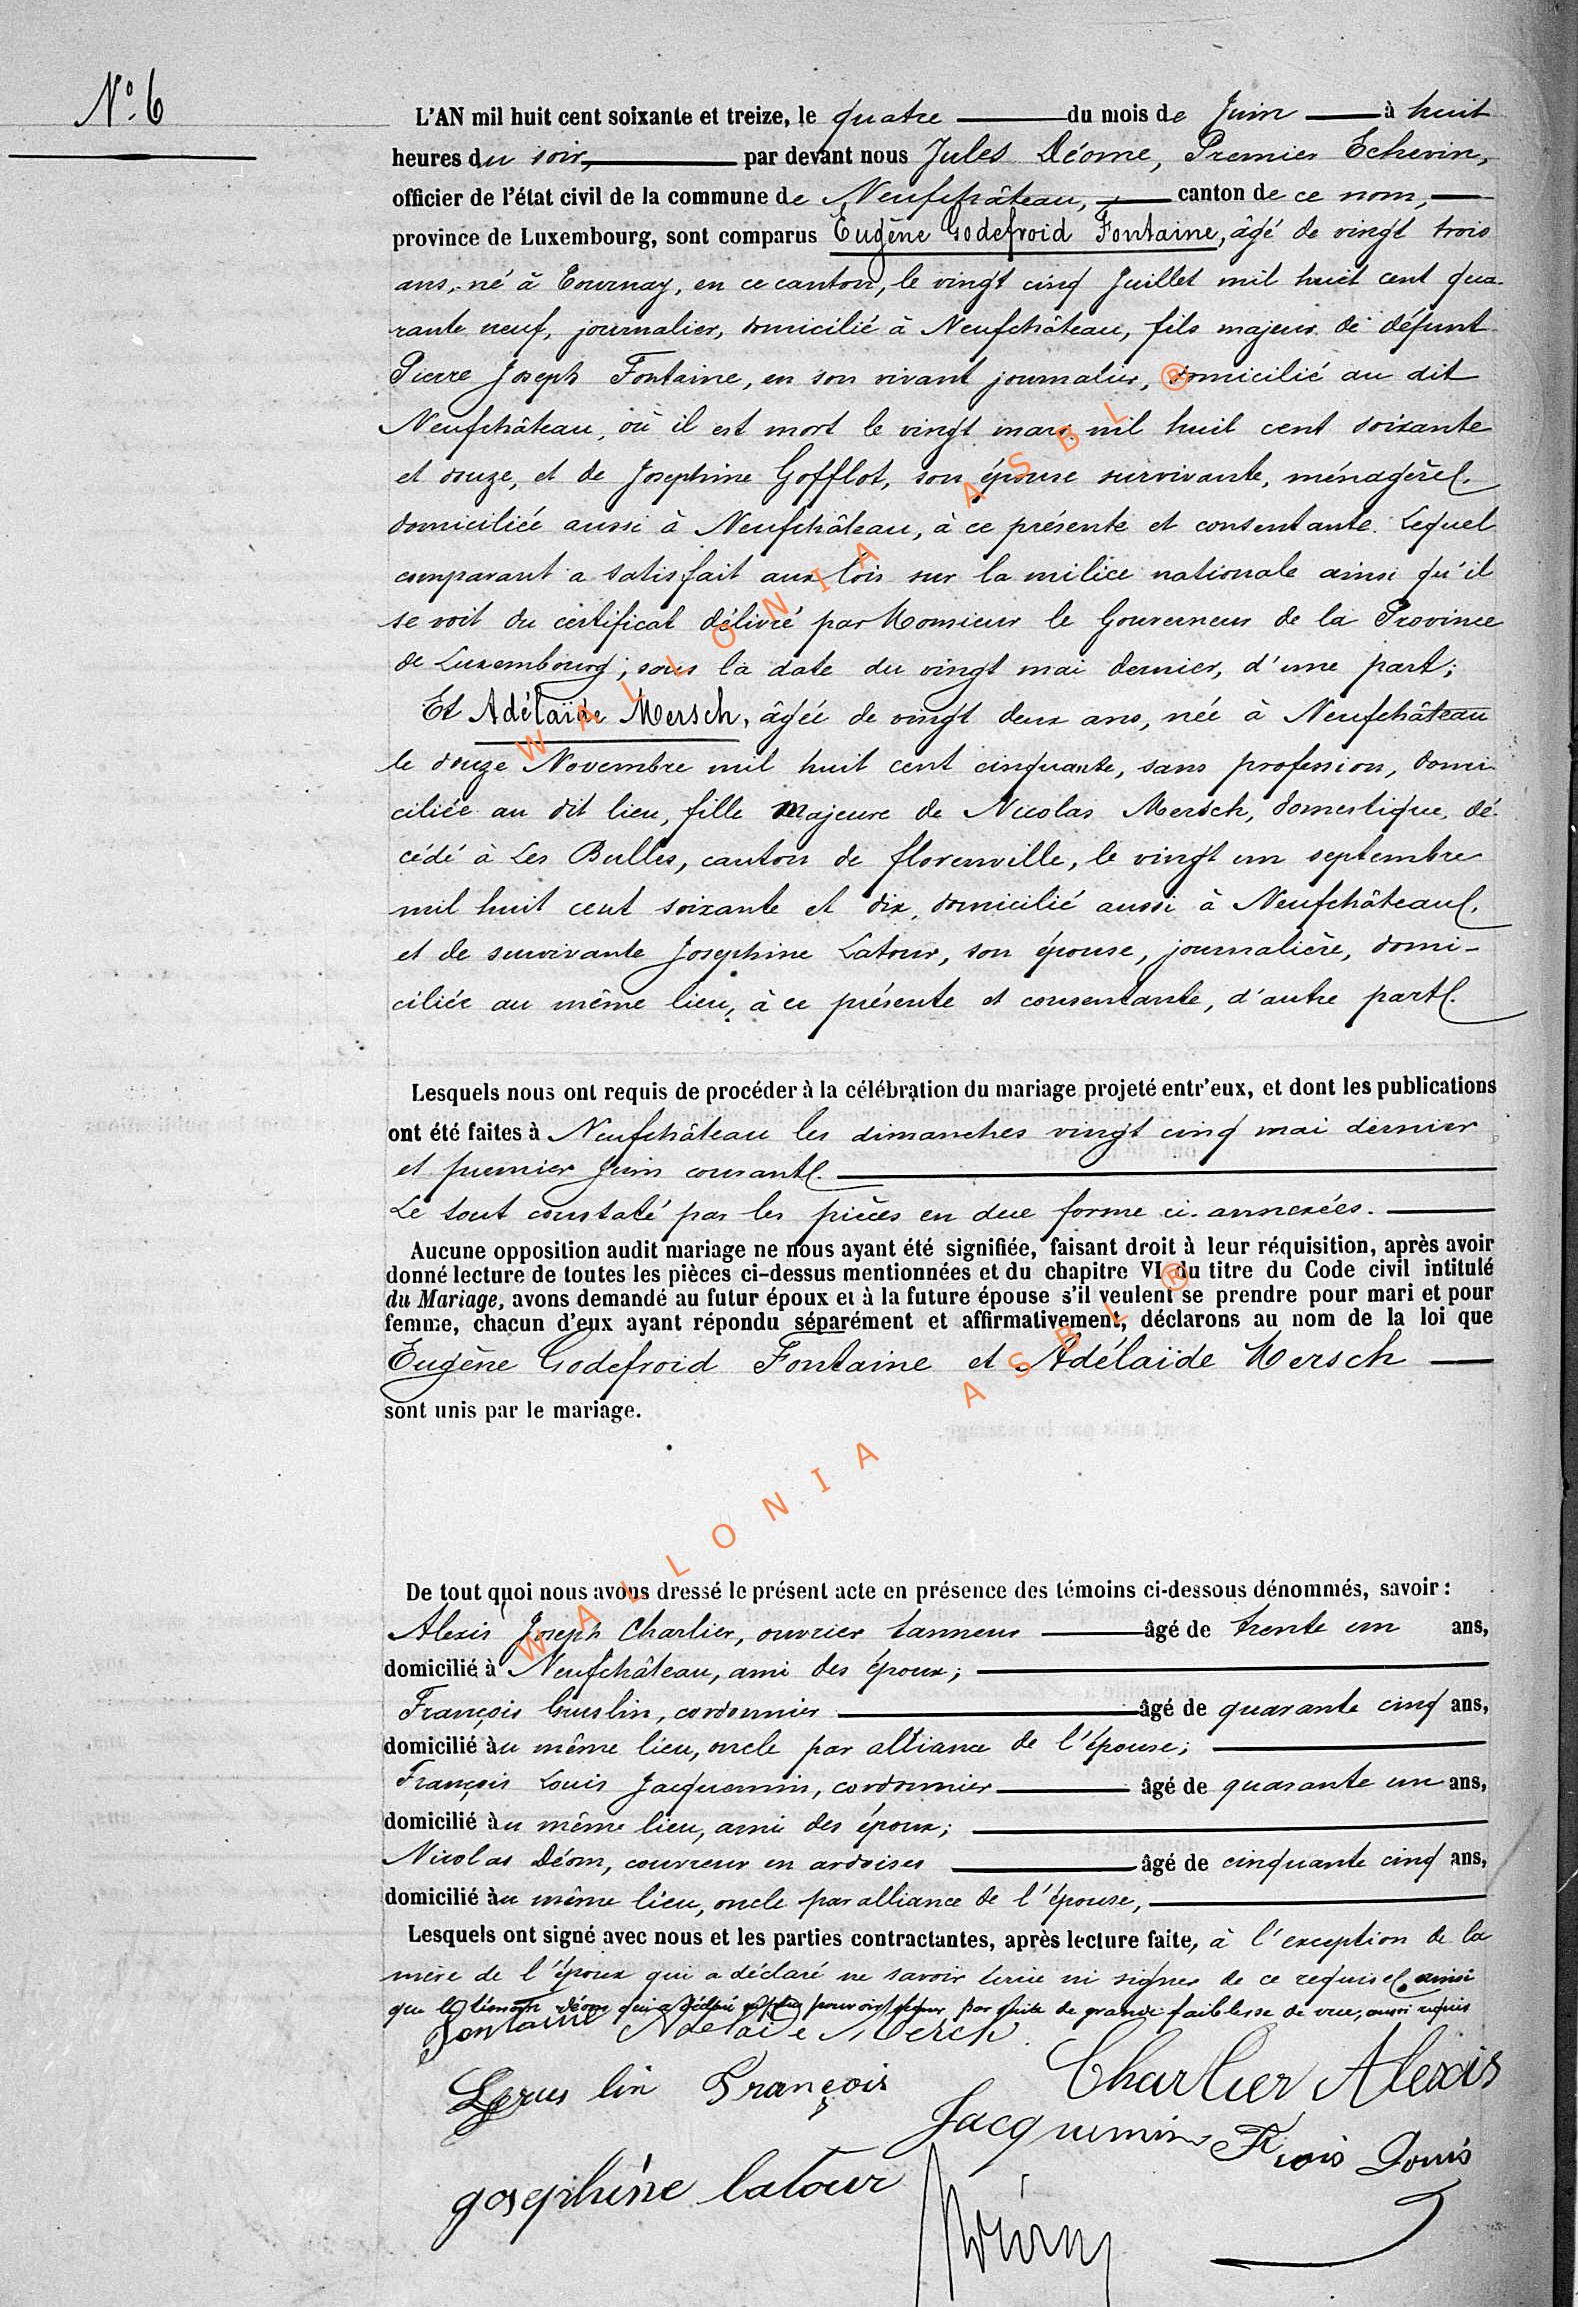 N° 6
L'AN mil huit cent soixante et treize, le quatre du mois de Juin à huit
heures du soir, par devant nous Jules Déome, Premier Echevin,
officier de l'état civil de la commune de Neufchâteau, canton de ce nom,
province de Luxembourg, sont comparus Eugène Godefroid Fontaine, âgé de vingt trois
ans, né à Tournay, en ce canton, le vingt cinq Juillet mil huit cent qua-
rante neuf, journalier, domicilié à Neufchâteau, fils majeur de défunt
Pierre Joseph Fontaine, en son vivant journalier, domicilié au dit
Neufchâteau, où il est mort le vingt mars mil huit cent soixante
et douze, et de Josephine Gofflot, son épouse survivante, ménagère,
domiciliée aussi à Neufchâteau, à ce présente et consentante. Lequel
comparant a satisfait aux lois sur la milice nationale ainsi qu'il
se voit du certificat délivré par Monsieur le Gouverneur de la Province
de Luxembourg, sous la date du vingt mai dernier, d'une part;
Et Adélaïde Mersch, âgée de vingt deux ans, née à Neufchâteau
le douze Novembre mil huit cent cinquante, sans profession, domi-
ciliée au dit lieu, fille majeure de Nicolas Mersch, domestique, dé-
cédé à Les Bulles, canton de florenville, le vingt un septembre
mil huit cent soixante et dix, domicilié aussi à Neufchâteau,
et de survivante Josephine Latour, son épouse, journalière, domi-
ciliée au même lieu, à ce présente et consentante, d'autre part.
Lesquels nous ont requis de procéder à la célébration du mariage projeté entr'eux, et dont les publications
ont été faites à Neufchâteau les dimanches vingt cinq mai dernier
et premier Juin courant.
Le tout constaté par les pièces en due forme ci-annexées.
Aucune opposition audit mariage ne nous ayant été signifiée, faisant droit à leur réquisition, après avoir
donné lecture de toutes les pièces ci-dessus mentionnées et du chapitre VI du titre du Code civil intitulé
du Mariage, avons demandé au futur époux et à la future épouse s'il veulent se prendre pour mari et pour
femme, chacun d'eux ayant répondu séparément et affirmativement, déclarons au nom de la loi que
Eugène Godefroid Fontaine et Adélaïde Mersch
sont unis par le mariage.
De tout quoi nous avons dressé le présent acte en présence des témoins ci-dessous dénommés, savoir :
Alexis Joseph Charlier, ouvrier tanneur âgé de trente un ans,
domicilié à Neufchâteau, ami des époux;
François Gruslin, cordonnier âgé de quarante cinq ans,
domicilié àu même lieu, oncle par alliance de l'épouse;
François Louis Jacquemin, cordonnier âgé de quarante un ans,
domicilié àu même lieu, ami des époux;
Nicolas Déom, couvreur en ardoises âgé de cinquante cinq ans,
domicilié àu même lieu, oncle par alliance de l'épouse,
Lesquels ont signé avec nous et les parties contractantes, après lecture faite, à l'exception de la
mère de l'époux qui a déclaré ne savoir écrire ni signer de ce requise, ainsi
que le témoin Déom qui a déclaré pouvoir signer par suite de grande faiblesse de vue, aussi requis
Fontaine Adelaide Merch
Grus lin François Charlier Alexis
Jacquemin Frois Louis
josephine latour
Déom
WALLONIA ASBL ®
WALLONIA ASBL ®